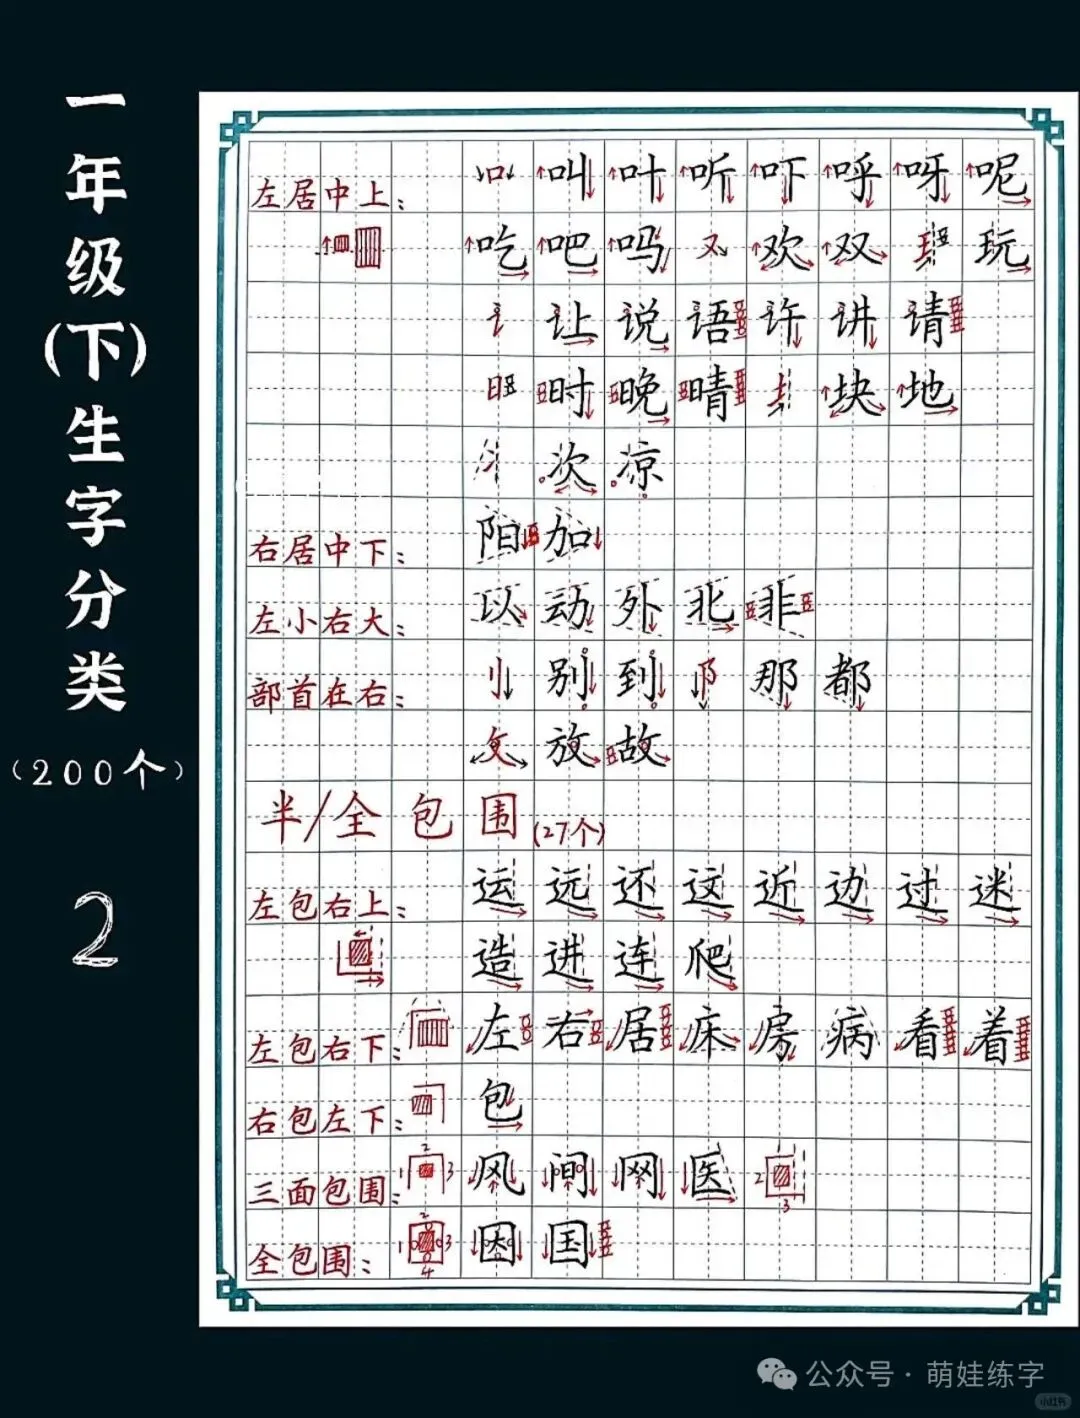 一年级(下)生字分类
(200个)
2
左居中上: 口 叫 叶 听 吓 呼 呀 呢
吃 吧 吗 又 欢 双 玩
讠 让 说 语 许 讲 请
日 时 晚 晴 块 地
冫 次 凉
右居中下: 阳 加
左小右大: 以 动 外 北 非
部首在右: 刂 别 到 阝 那 都
攵 放 故
半/全包围(27个)
左包右上: 运 远 还 这 近 边 过 迷
造 进 连 爬
左包右下: 左 右 居 床 房 病 看 着
右包左下: 包
三面包围: 1 2 3 风 间 网 医 2 3
全包围: 1 2 3 4 因 国
公众号·萌娃练字
小红书